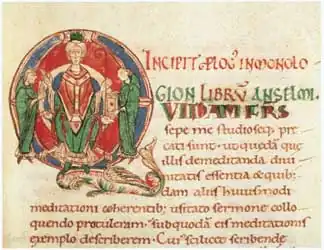 INCIPIT PLOG' IN MONOLO
GION LIBRV ANSELMI.
VIDAM FRS
sepe me studioseq; pre
cati sunt. ut quedā que
illis de meditanda divi
nitatis essentia & quib;
dam aliis huiusmodi
meditationi coherentib; usitato sermone collo
quendo protuleram. sub quodā eis meditationis
exemplo describerem. Cui' scilicet scribende